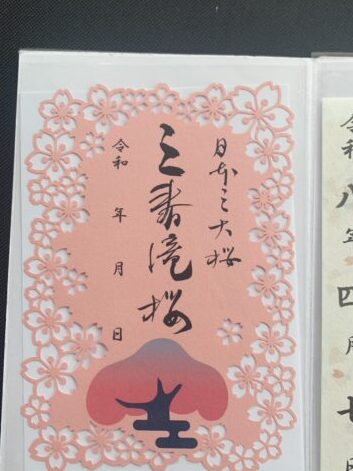 令和八年四月七日
日本三大桜
三春滝桜
令和 年 月 日